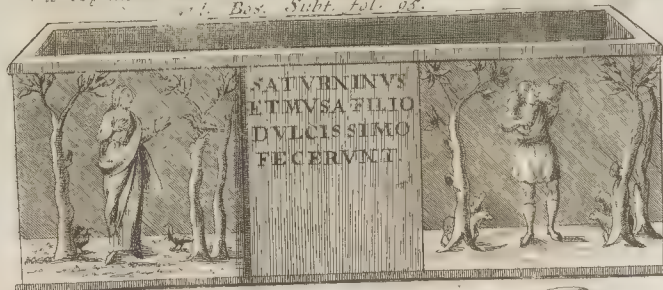 Bos. Subt. fol. 95.
SATVRNINVS
ET MVSA FILIO
DVLCISSIMO
FECERVNT.